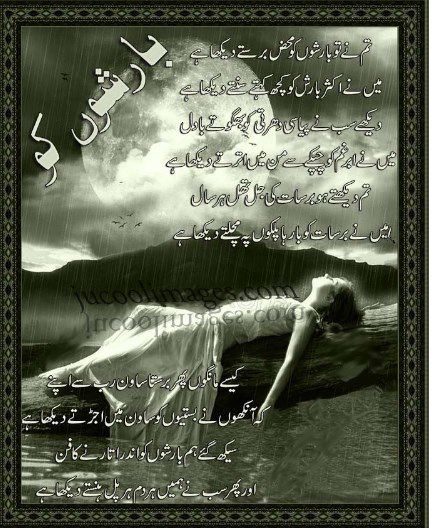 بارشوں کو
تم نے تو بارشوں کو محض برستے دیکھا ہے
میں نے اکثر بارش کو کچھ کہتے سنتے دیکھا ہے
دیکھے سب نے پیاسی دھرتی کو بھگوتے بادل
میں نے ابرِ غم کو چپکے سے من میں اترتے دیکھا ہے
تم دیکھتے ہو برسات کی جل تھل ہر سال
میں نے برسات کو بارہا پلکوں پہ مچلتے دیکھا ہے
jucoolimages.com
jucoolimages.com
کیسے مانگوں پھر برستا ساون رب سے اپنے
کہ آنکھوں نے بستیوں کو ساون میں اجڑتے دیکھا ہے
سیکھ گئے ہم بارشوں کو اندر اتارنے کا فن
اور پھر سب نے ہمیں ہر دم ہر پل ہنستے دیکھا ہے